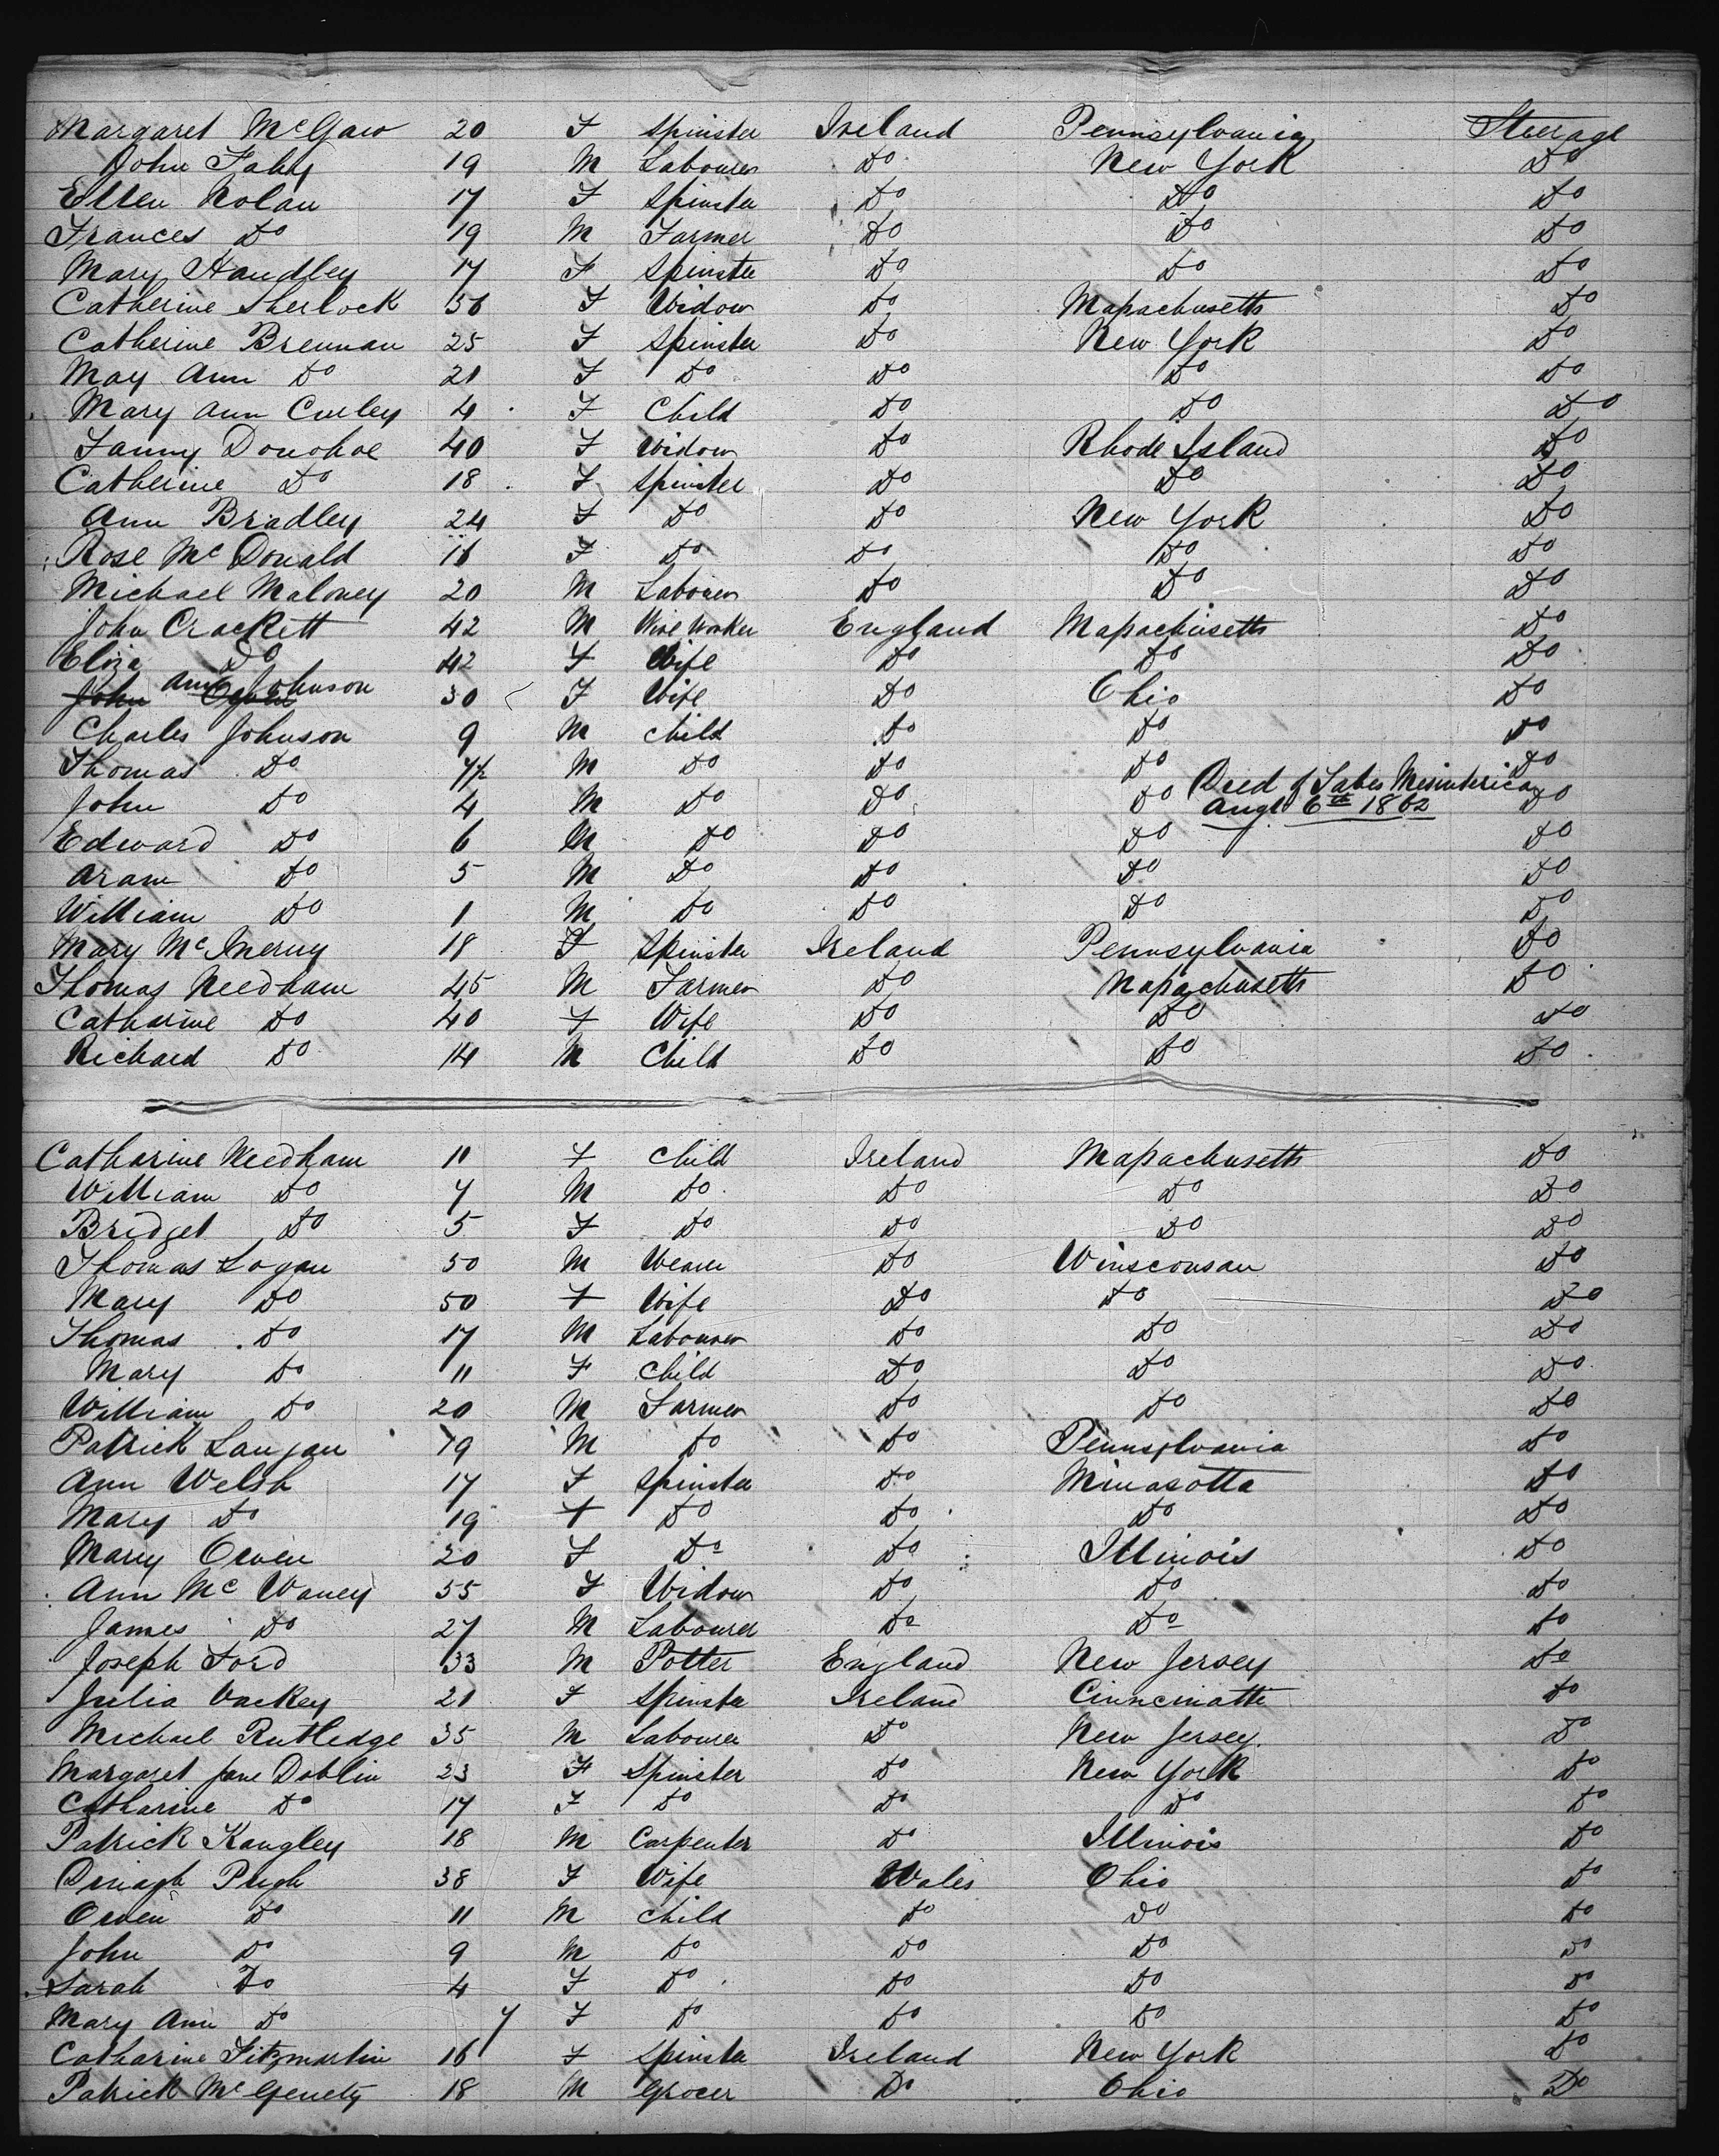 Margaret McGaw 20 F Spinster Ireland Pennsylvania Steerage
John Fahy 19 M Labourer Do New York Do
Ellen Nolan 17 F Spinster Do Do Do
Frances Do 19 M Farmer Do Do Do
Mary Handley 17 F Spinster Do Do Do
Catherine Sherlock 36 F Widow Do Massachusetts Do
Catherine Brennan 25 F Spinster Do New York Do
May Ann Do 21 F Do Do Do Do
Mary Ann Curley 4 F Child Do Do Do
Fanny Donohoe 40 F Widow Do Rhode Island Do
Catherine Do 18 F Spinster Do Do Do
Ann Bradley 24 F Do Do New York Do
Rose McDonald 16 F Do Do Do Do
Michael Maloney 20 M Labourer Do Do Do
John Crockett 42 M Wire Worker England Massachusetts Do
Eliza Do 42 F Wife Do Do Do
John Ann Johnson 30 F Wife Do Ohio Do
Charles Johnson 9 M Child Do Do Do
Thomas Do 7½ M Do Do Do Do
John Do 4 M Do Do Do Died of Tabes Mesinterica Augt 6th 1862 Do
Edward Do 6 M Do Do Do Do
Aram Do 5 M Do Do Do Do
William Do 1 M Do Do Do Do
Mary McInerny 18 F Spinster Ireland Pennsylvania Do
Thomas Needham 45 M Farmer Do Massachusetts Do
Catharine Do 40 F Wife Do Do Do
Richard Do 14 M Child Do Do Do
Catharine Needham 11 F Child Ireland Massachusetts Do
William Do 7 M Do Do Do Do
Bridget Do 5 F Do Do Do Do
Thomas Logan 50 M Weaver Do Winsconsan Do
Mary Do 50 F Wife Do Do Do
Thomas Do 17 M Labourer Do Do Do
Mary Do 11 F Child Do Do Do
William Do 20 M Farmer Do Do Do
Patrick Langan 19 M Do Do Pennsylvania Do
Ann Welsh 17 F Spinster Do Minasotta Do
Mary Do 19 F Do Do Do Do
Mary Owen 20 F Do Do Illinois Do
Ann Mc Waney 55 F Widow Do Do Do
James Do 27 M Labourer Do Do Do
Joseph Ford 33 M Potter England New Jersey Do
Julia 21 F Spinster Ireland Cinncinatti Do
Michael Rutledge 35 M Labourer Do New Jersey. Do
Margaret Jane Doblin 23 F Spinster Do New York Do
Catharine Do 17 F Do Do Do Do
Patrick Kangley 18 M Carpenter Do Illinois Do
Dinagh Pugh 38 F Wife Wales Ohio Do
Owen Do 11 M Child Do Do Do
John Do 9 M Do Do Do Do
Sarah Do 4 F Do Do Do Do
Mary Ann Do 7 F Do Do Do Do
Catharine Fitzmartin 16 F Spinster Ireland New York Do
Patrick McGenety 18 M Grocer Do Ohio Do